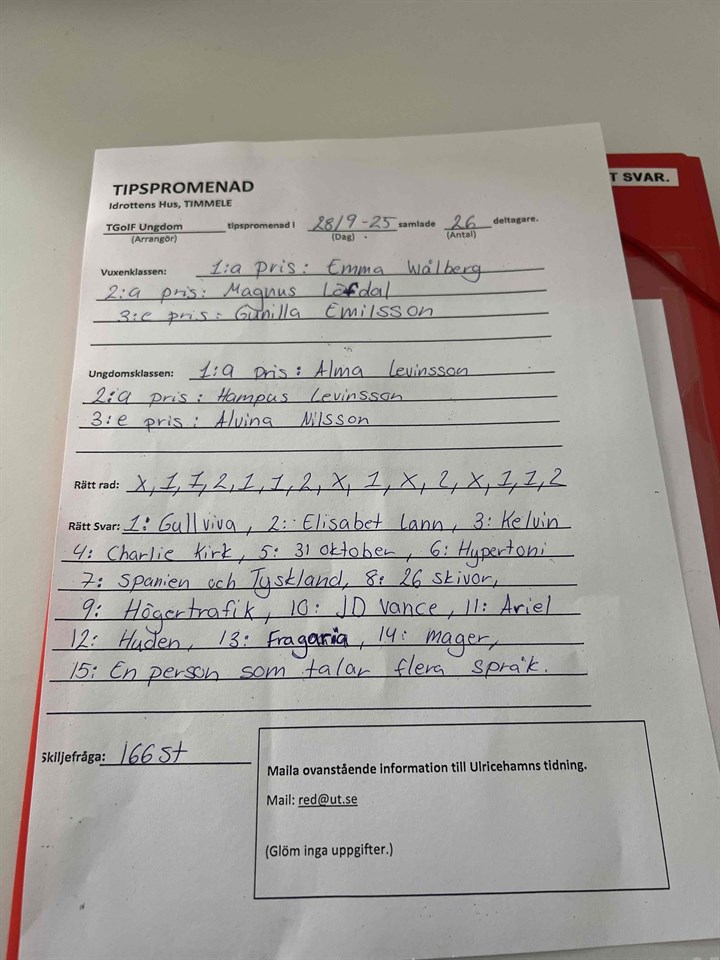 T SVAR.
TIPSPROMENAD
Idrottens Hus, TIMMELE
TGoIF Ungdom tipspromenad i 28/9-25 samlade 26 deltagare.
(Arrangör) (Dag) (Antal)
Vuxenklassen: 1:a pris: Emma Wålberg
2:a pris: Magnus Löfdal
3:e pris: Gunilla Emilsson
Ungdomsklassen: 1:a pris: Alma Levinsson
2:a pris: Hampus Levinsson
3:e pris: Alvina Nilsson
Rätt rad: X, 1, 1, 2, 1, 1, 2, X, 1, X, 2, X, 1, 1, 2
Rätt Svar: 1: Gullviva, 2: Elisabet Lann, 3: Kelvin
4: Charlie Kirk, 5: 31 oktober, 6: Hypertoni
7: Spanien och Tyskland, 8: 26 skivor,
9: Högertrafik, 10: JD Vance, 11: Ariel
12: Huden, 13: Fragaria, 14: mager,
15: En person som talar flera språk.
Skiljefråga: 166 st
Maila ovanstående information till Ulricehamns tidning.
Mail: red@ut.se
(Glöm inga uppgifter.)